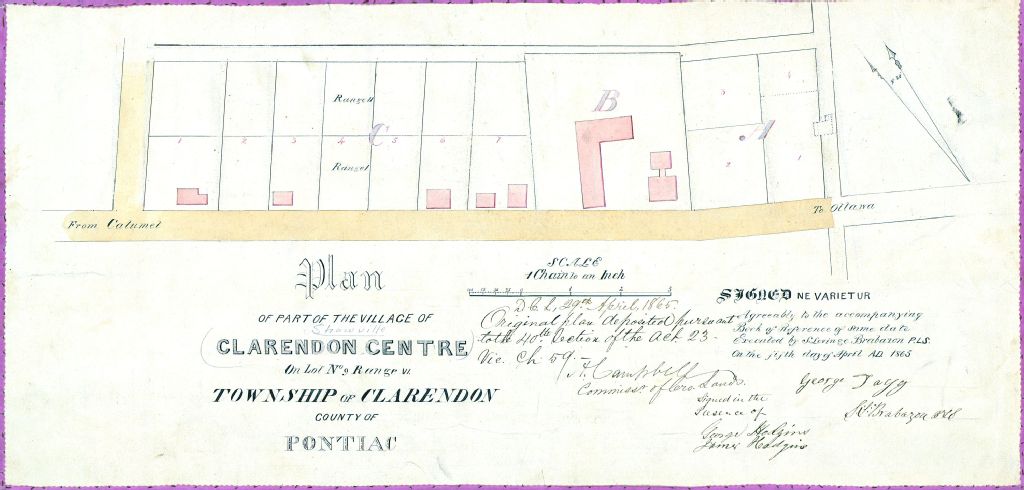 B
Range II
C
A
3
4
1
2
3
4
5
6
7
2
1
Range I
To Ottawa
From Calumet
Plan
OF PART OF THE VILLAGE OF
Shawville
CLARENDON CENTRE
On Lot No 9 Range VI
TOWNSHIP OF CLARENDON
COUNTY OF
PONTIAC
SCALE
1 Chain to an Inch
D. C. L, 29th April, 1865
Original plan deposited pursuant
to the 40th Section of the Act 23-
Vic. Ch 59.-
A. Campbell
Commissr. of Cro. Lands.
SIGNED NE VARIETUR
Agreeably to the accompanying
Book of Reference of same date
Executed by S. Levinge Brabazon P.L.S.
On the day of April AD. 1865
George Dagg
Brabazon
Signed in the
Presence of
George Hodgins
James Hodgins